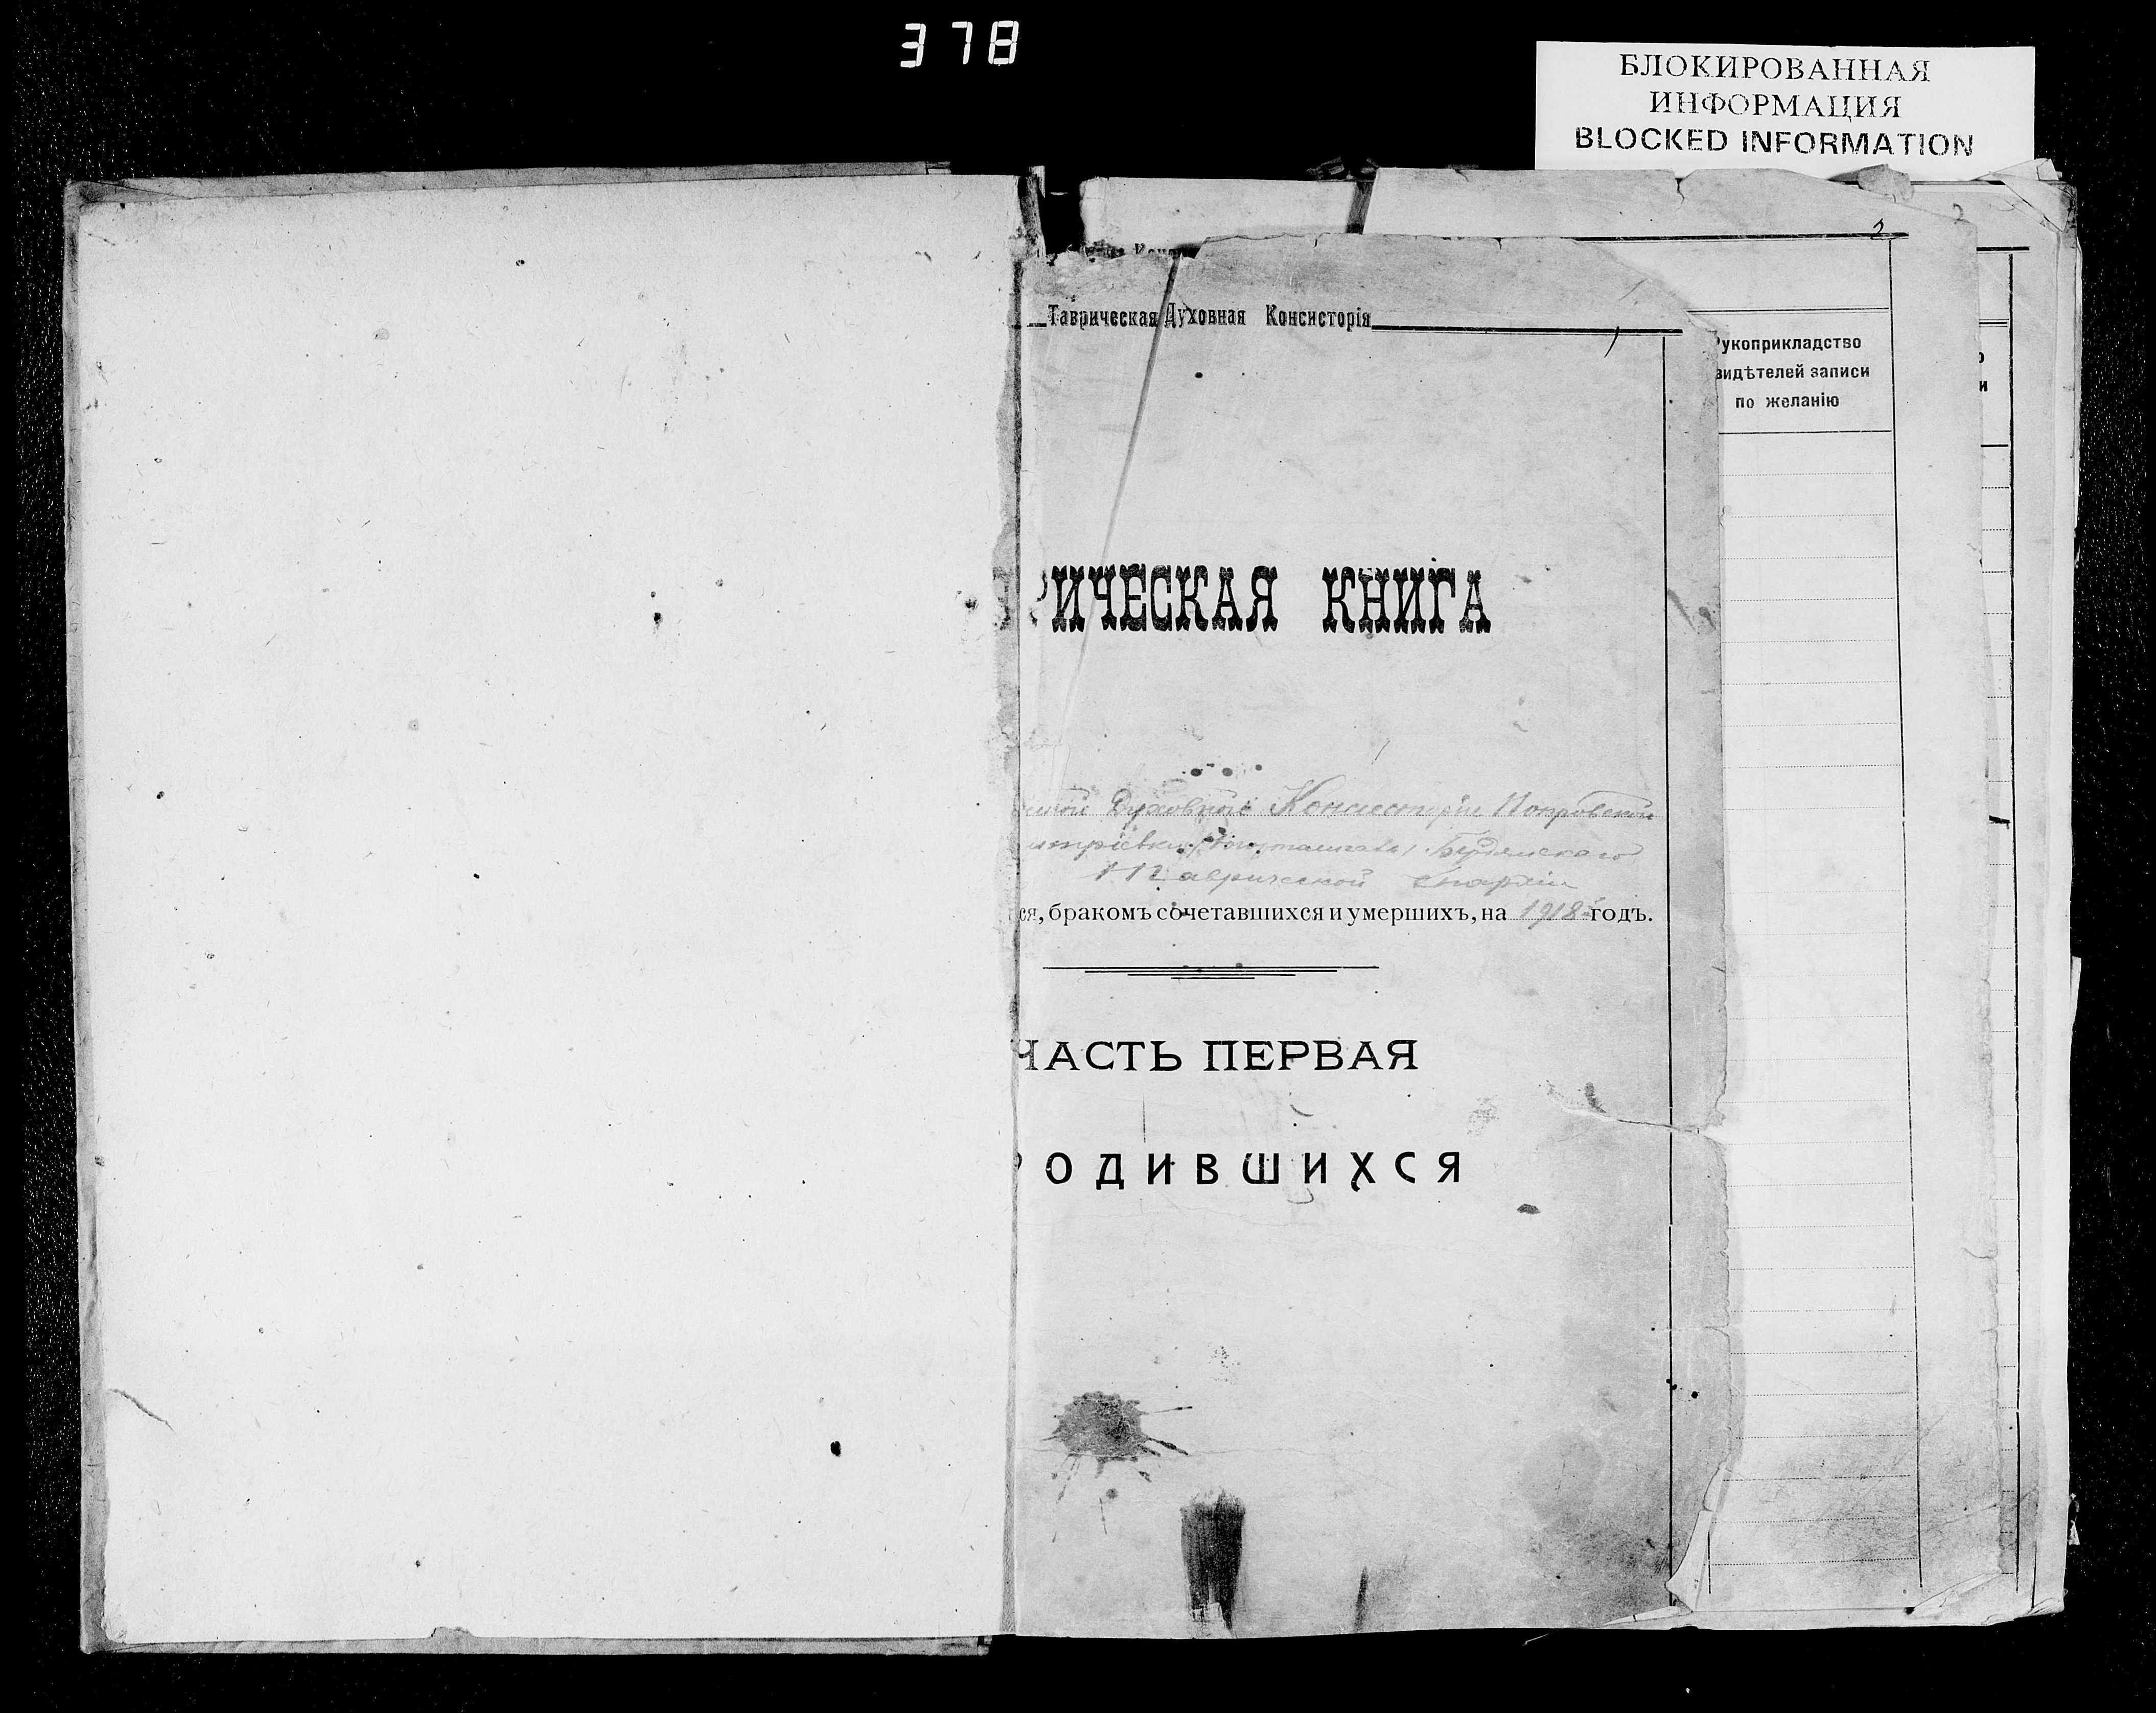 378
БЛОКИРОВАННАЯ
ИНФОРМАЦИЯ
BLOCKED INFORMATION
2
2
Таврическая Духовная Консисторія
1
Рукоприкладство
свидѣтелей записи
по желанію
РИЧЕСКАЯ КНИГА
Духовной Консисторіи Покровской
Бердянскаго
Таврической Епархіи
ся, бракомъ сочетавшихся и умершихъ, на 1918 годъ.
ЧАСТЬ ПЕРВАЯ
РОДИВШИХСЯ